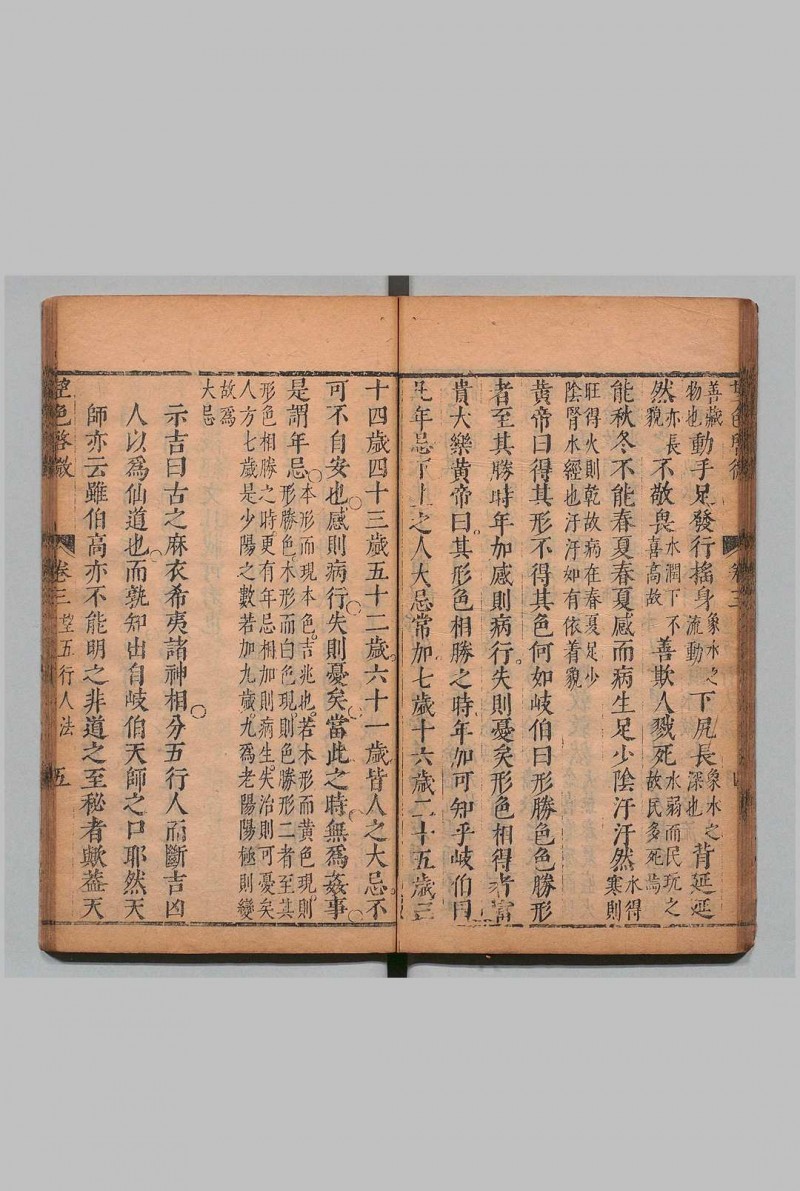 善藏物也動手足發行搖身象水之流動下尻長象水之深也背延延
然亦長貌不敬畏水潤下不喜高故善欺人戮死水弱而民玩之故民多死焉
能秋冬不能春夏春夏感而病生足少陰汗汗然水得寒則
旺得火則乾故病在春夏足少陰腎水經也汗汗如有依着貌
黃帝曰得其形不得其色何如岐伯曰形勝色色勝形
者至其勝時年加感則病行失則憂矣形色相得者富
貴大樂黃帝曰其形色相勝之時年加可知乎岐伯曰
凡年忌下上之人大忌常加七歲十六歲二十五歲三
十四歲四十三歲五十二歲六十一歲皆人之大忌不
可不自安也感則病行失則憂矣當此之時無為姦事
是謂年忌本形而現本色吉兆也若木形而黃色現則形勝色木形而白色現則色勝形二者至其
形色相勝之時更有年忌相加則病生失治則可憂矣人方七歲是少陽之數若加九歲九爲老陽陽極則變
故爲大忌
示吉曰古之麻衣希夷諸神相分五行人而斷吉凶
人以爲仙道也而孰知出自岐伯天師之口耶然天
師亦云雖伯高亦不能明之非道之至秘者歟蓋天
望色啓微 卷三 望五行人法 五